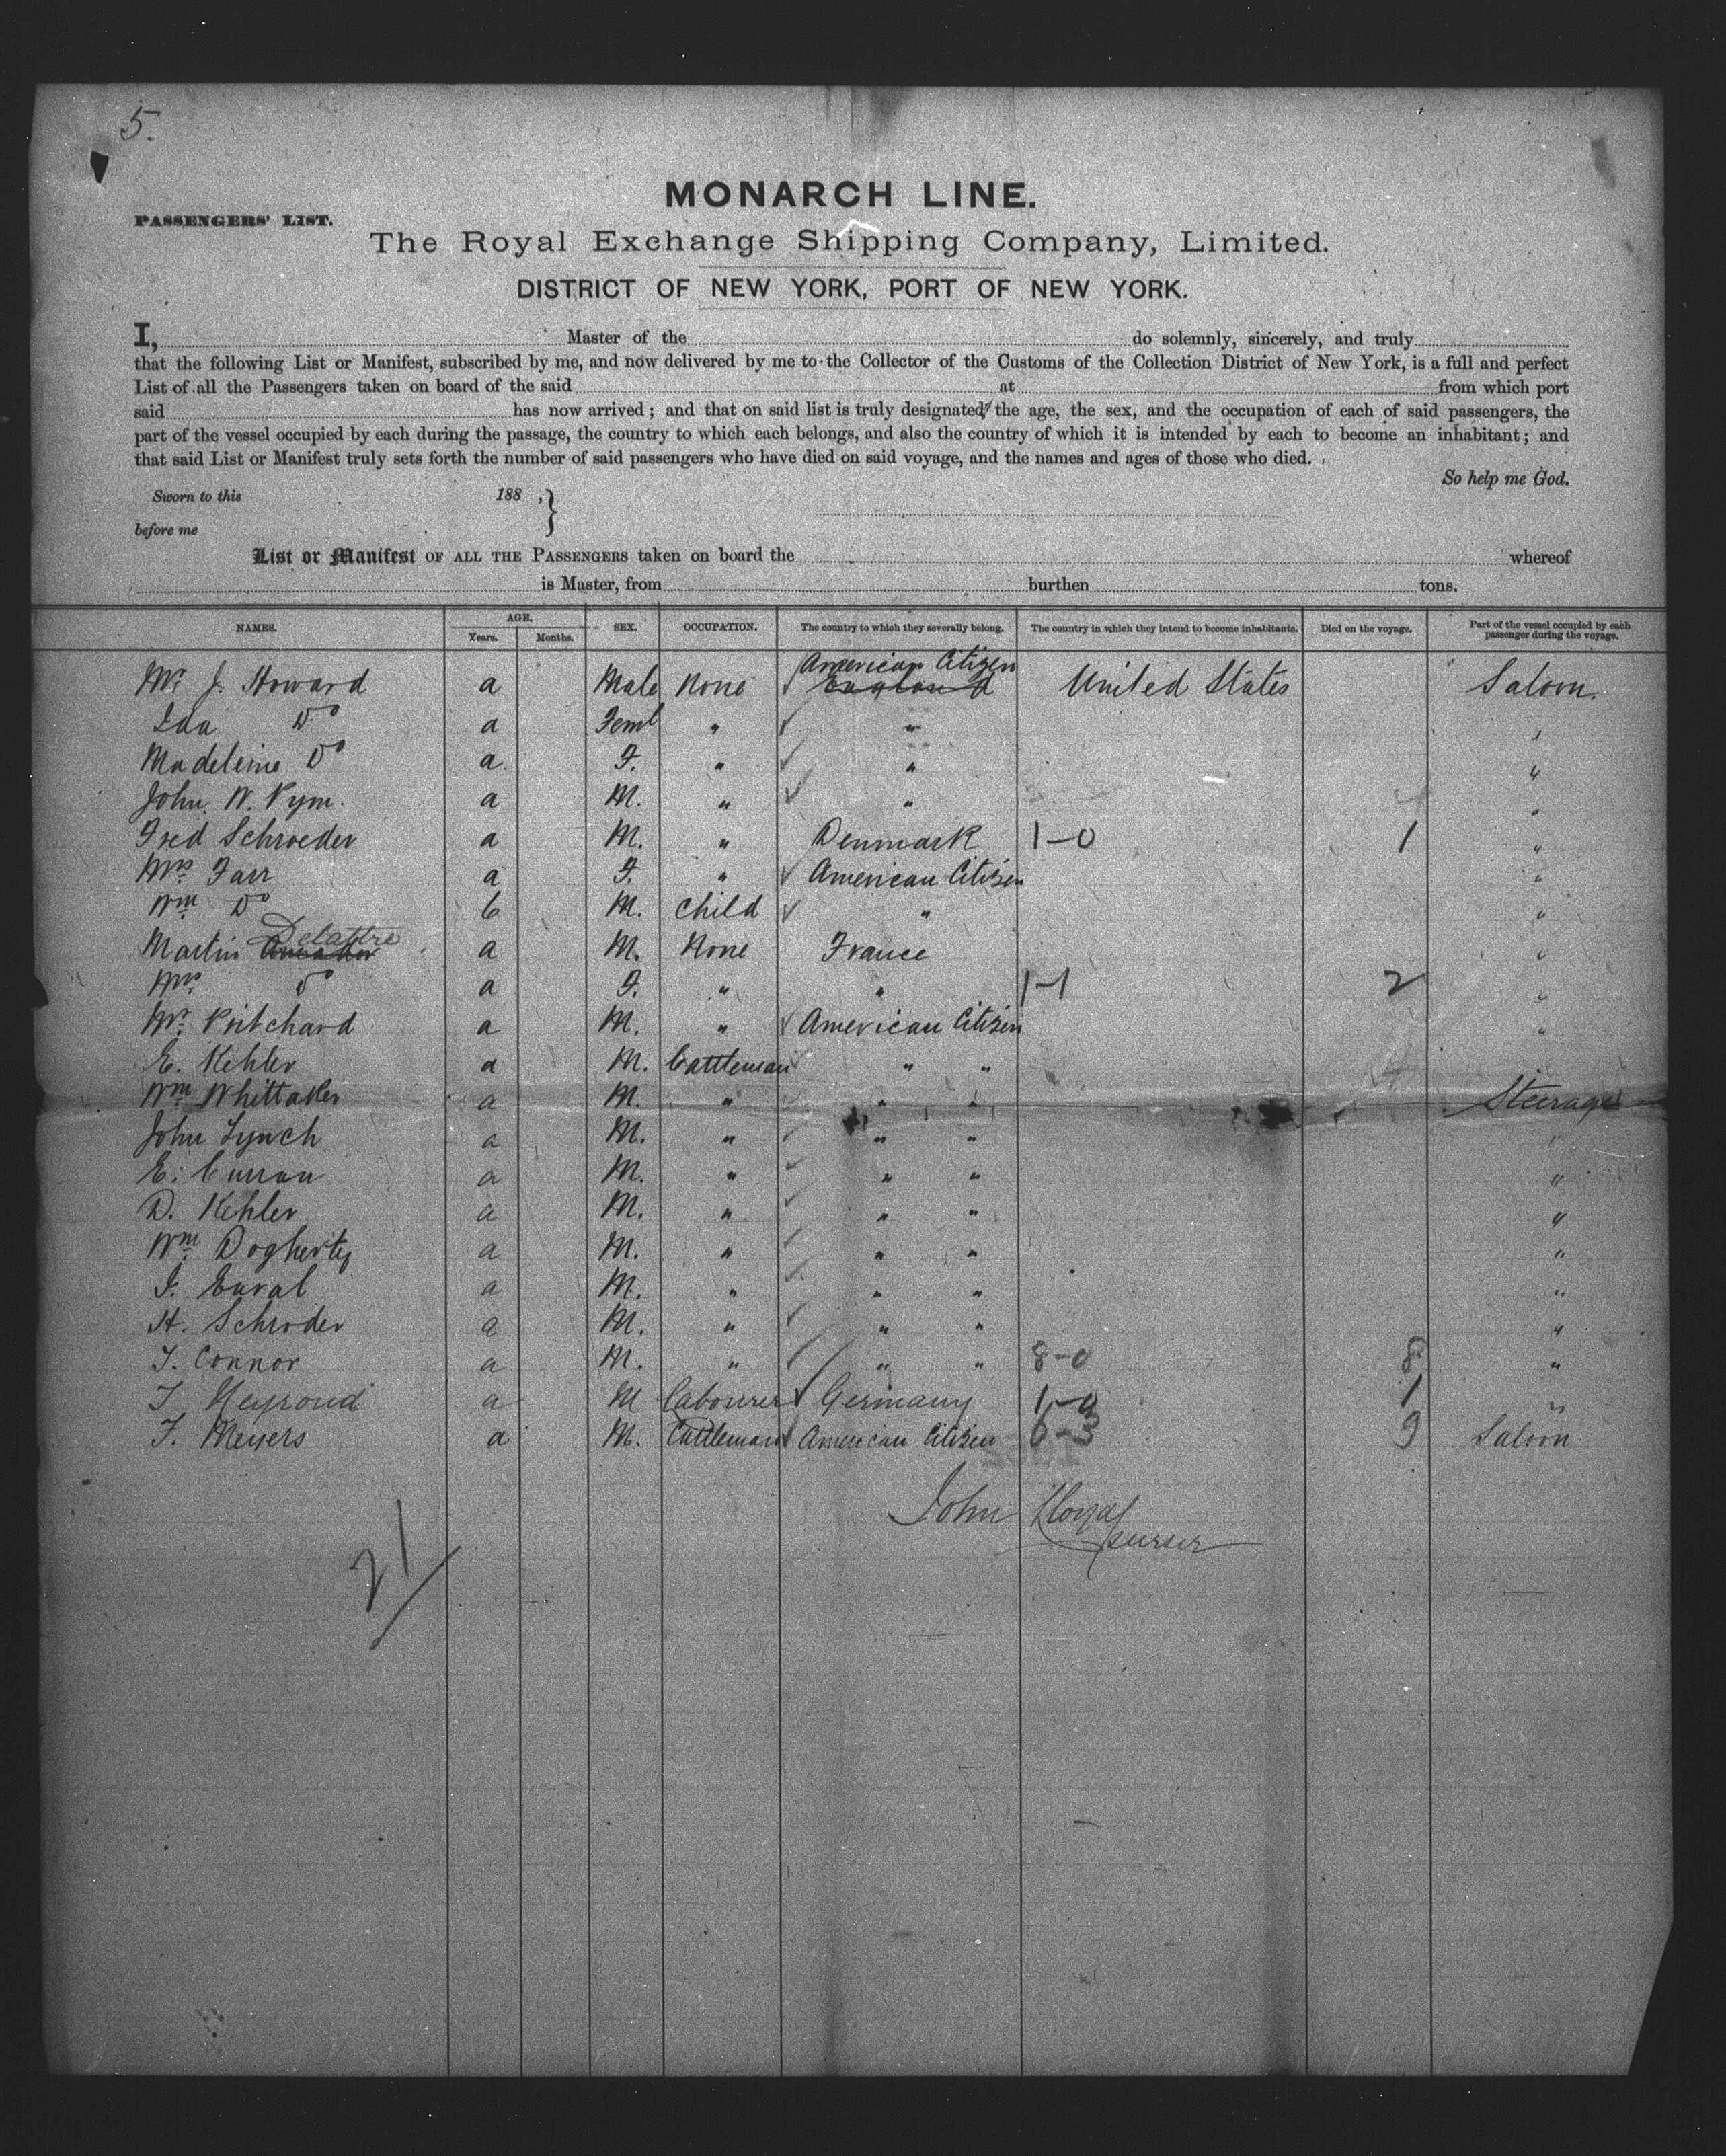 5.
MONARCH LINE.
PASSENGERS' LIST.
The Royal Exchange Shipping Company, Limited.
DISTRICT OF NEW YORK, PORT OF NEW YORK.
I, Master of the do solemnly, sincerely, and truly
that the following List or Manifest, subscribed by me, and now delivered by me to the Collector of the Customs of the Collection District of New York, is a full and perfect
List of all the Passengers taken on board of the said at from which port
said has now arrived; and that on said list is truly designated, the age, the sex, and the occupation of each of said passengers, the
part of the vessel occupied by each during the passage, the country to which each belongs, and also the country of which it is intended by each to become an inhabitant; and
that said List or Manifest truly sets forth the number of said passengers who have died on said voyage, and the names and ages of those who died.
So help me God.
Sworn to this 188 , }
before me
List or Manifest OF ALL THE PASSENGERS taken on board the whereof
is Master, from burthen tons.
NAMES. AGE. Years. Months. SEX. OCCUPATION. The country to which they severally belong. The country in which they intend to become inhabitants. Died on the voyage. Part of the vessel occupied by each passenger during the voyage.
American Citizen
Mr J. Howard a Male None England United States Saloon.
Ida Do a Feml " " "
Madeleine Do a. F. " " "
John W. Pym. a M. " " "
Fred Schroeder a M. " Denmark 1-0 1 "
Mrs Farr a F. " American Citizen "
Wm Do 6 M. Child " "
Delattre
Martin a M. None France "
Mrs Do a F. " " 1-1 2 "
Mr Pritchard a M. " American Citizen "
E. Kehler a M. Cattleman " "
Wm Whittaker a M. " " " Steerage
John Lynch a M. " " " "
E. Curran a M. " " " "
D. Kehler a M. " " " "
Wm Dogherty a M. " " " "
a M. " " " "
H. Schroder a M. " " " "
T. Connor a M. " " " 8-0 8 "
a M Labourer Germany 1-0 1 "
F. Meyers a M. Cattleman American Citizen 6-3 9 Saloon
John Lloyd
purser
21